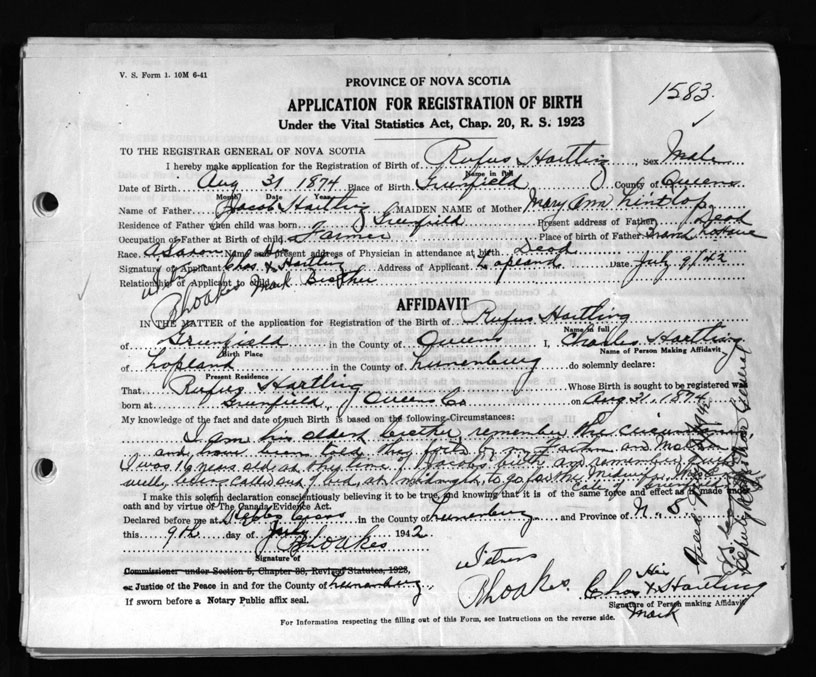 V. S. Form 1. 10M 6-41
PROVINCE OF NOVA SCOTIA
1583
APPLICATION FOR REGISTRATION OF BIRTH
Under the Vital Statistics Act, Chap. 20, R. S. 1923
TO THE REGISTRAR GENERAL OF NOVA SCOTIA
I hereby make application for the Registration of Birth of Rufus Hartling, Sex Male
Name in full
Date of Birth Aug 31 1874 Place of Birth Greenfield County of Queens
Month Date Year
Name of Father Jacob Hartling MAIDEN NAME of Mother Mary Ann
Residence of Father when child was born Greenfield Present address of Father Dead
Occupation of Father at Birth of child Farmer Place of birth of Father
Race Name and present address of Physician in attendance at birth Dead
Signature of Applicant Chas X Hartling Address of Applicant Lapland Date July 9/42
His
Relationship of Applicant to Child Mark Brother
AFFIDAVIT
IN THE MATTER of the application for Registration of the Birth of Rufus Hartling
Name in full
of Greenfield in the County of Queens I, Charles Hartling
Birth Place Name of Person Making Affidavit
of Lapland in the County of Lunenburg do solemnly declare:
Present Residence
That Rufus Hartling Whose Birth is sought to be registered was
born at Greenfield, Queens Co on Aug 31, 1874
My knowledge of the fact and date of such Birth is based on the following Circumstances:
I am his eldest brother remember the
and have been told by my Father and Mother
I was 16 years old at the time of birth and remember quite
well, being called out of bed, at midnight, to go for the
I make this solemn declaration conscientiously believing it to be true, and knowing that it is of the same force and effect as if made under
oath and by virtue of The Canada Evidence Act.
Declared before me at in the County of Lunenburg and Province of N. S.
this 9th day of July 1942
Signature of
Commissioner under Section 5, Chapter 38, Revised Statutes, 1923,
or Justice of the Peace in and for the County of Lunenburg
If sworn before a Notary Public affix seal.
Witness
His
Chas X Hartling
Signature of Person making Affidavit
Mark
For Information respecting the filling out of this Form, see Instructions on the reverse side.